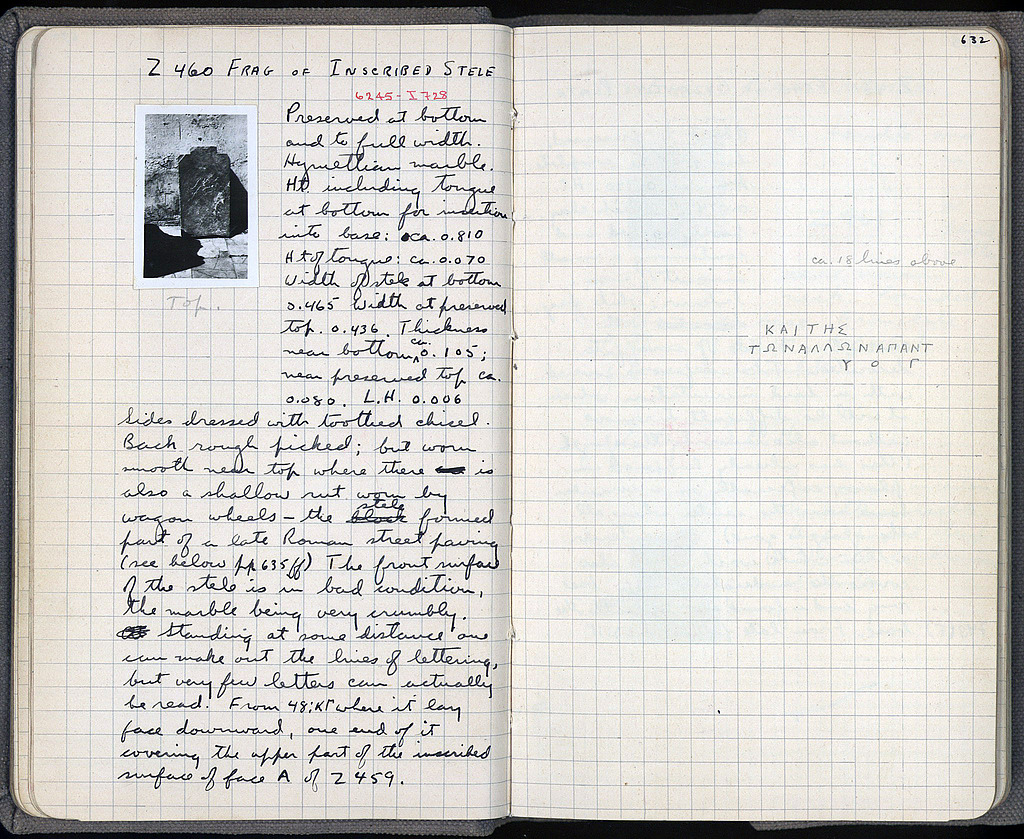 Z 460 FRAG OF INSCRIBED STELE
6245 - I 728
Preserved at bottom
and to full width.
Hymettian marble.
Ht including tongue
at bottom for insertion
into base: ca. 0.810
Ht of tongue: ca. 0.070
Width of stele at bottom
0.465 Width at preserved
top. 0.436. Thickness
near bottom ca. 0.105;
near preserved top ca.
0.080. L.H. 0.006
Top.
Sides dressed with toothed chisel.
Back rough picked; but worn
smooth near top where there is
also a shallow rut worn by
wagon wheels – the stele formed
part of a late Roman street paving
(see below pp. 635 ff) The front surface
of the stele is in bad condition,
the marble being very crumbly.
Standing at some distance one
can make out the lines of lettering,
but very few letters can actually
be read. From 48;ΚΓ where it lay
face downward, one end of it
covering the upper part of the inscribed
surface of face A of Z 459.
632
ca. 18 lines above
ΚΑΙΤΗΣ
ΤΩΝΑΛΛΩΝΑΠΑΝΤ
Υ Ο Γ